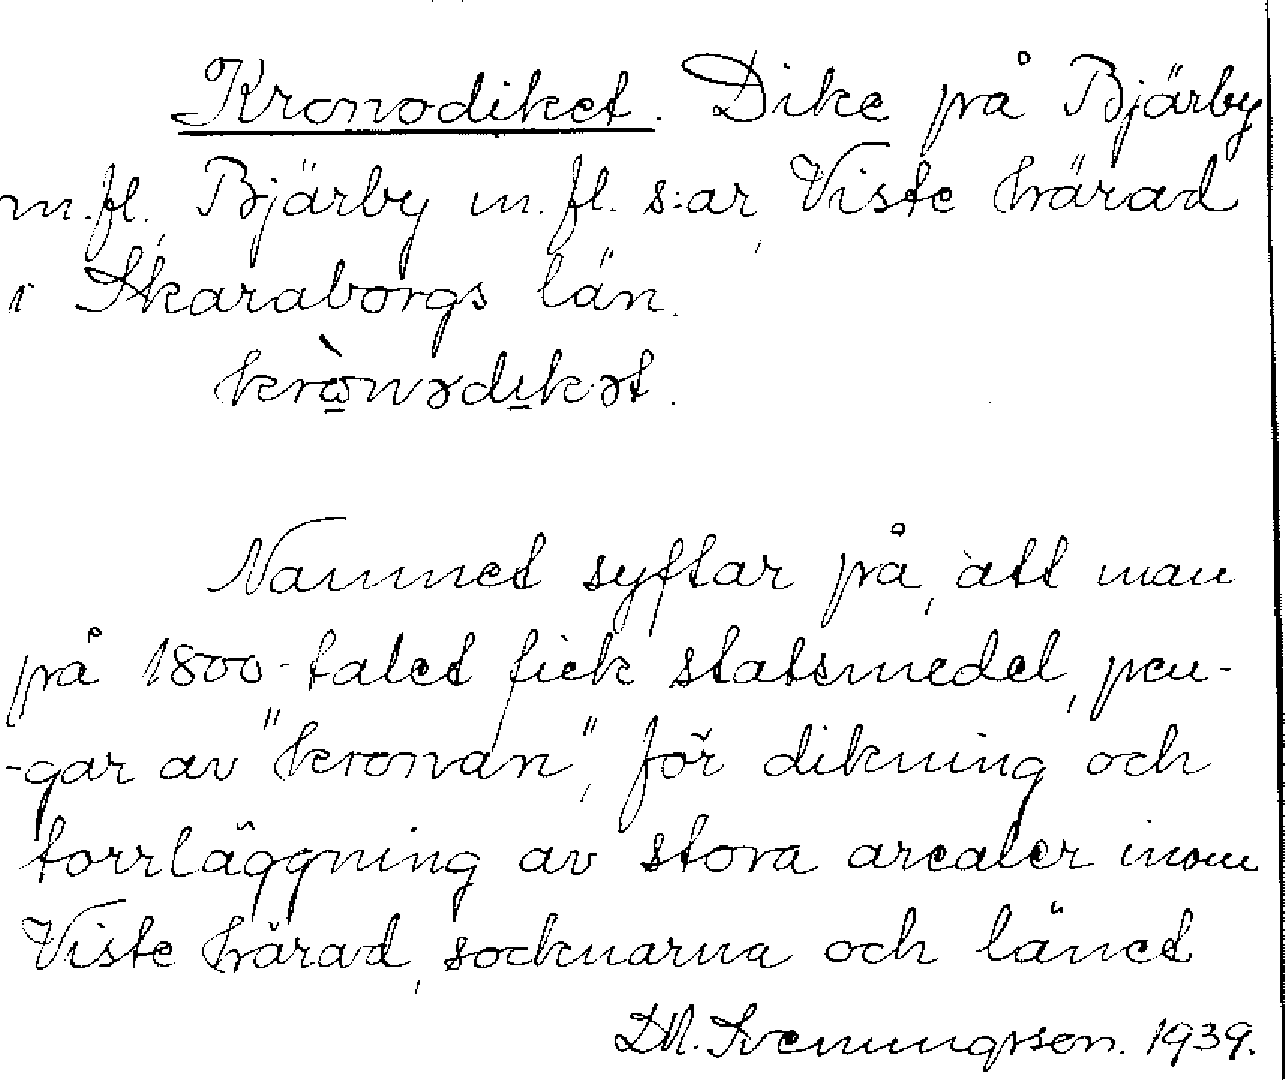 Kronodiket. Dike på Bjärby
m.fl., Bjärby m.fl. s:ar, Viste härad
i Skaraborgs län.
krò̱nədi̱k·ət.
Namnet syftar på, att man
på 1800-talet fick statsmedel, pen-
-gar av "kronan", för dikning och
torrläggning av stora arealer inom
Viste härad, socknarna och länet
D.A. Svenningsson. 1939.